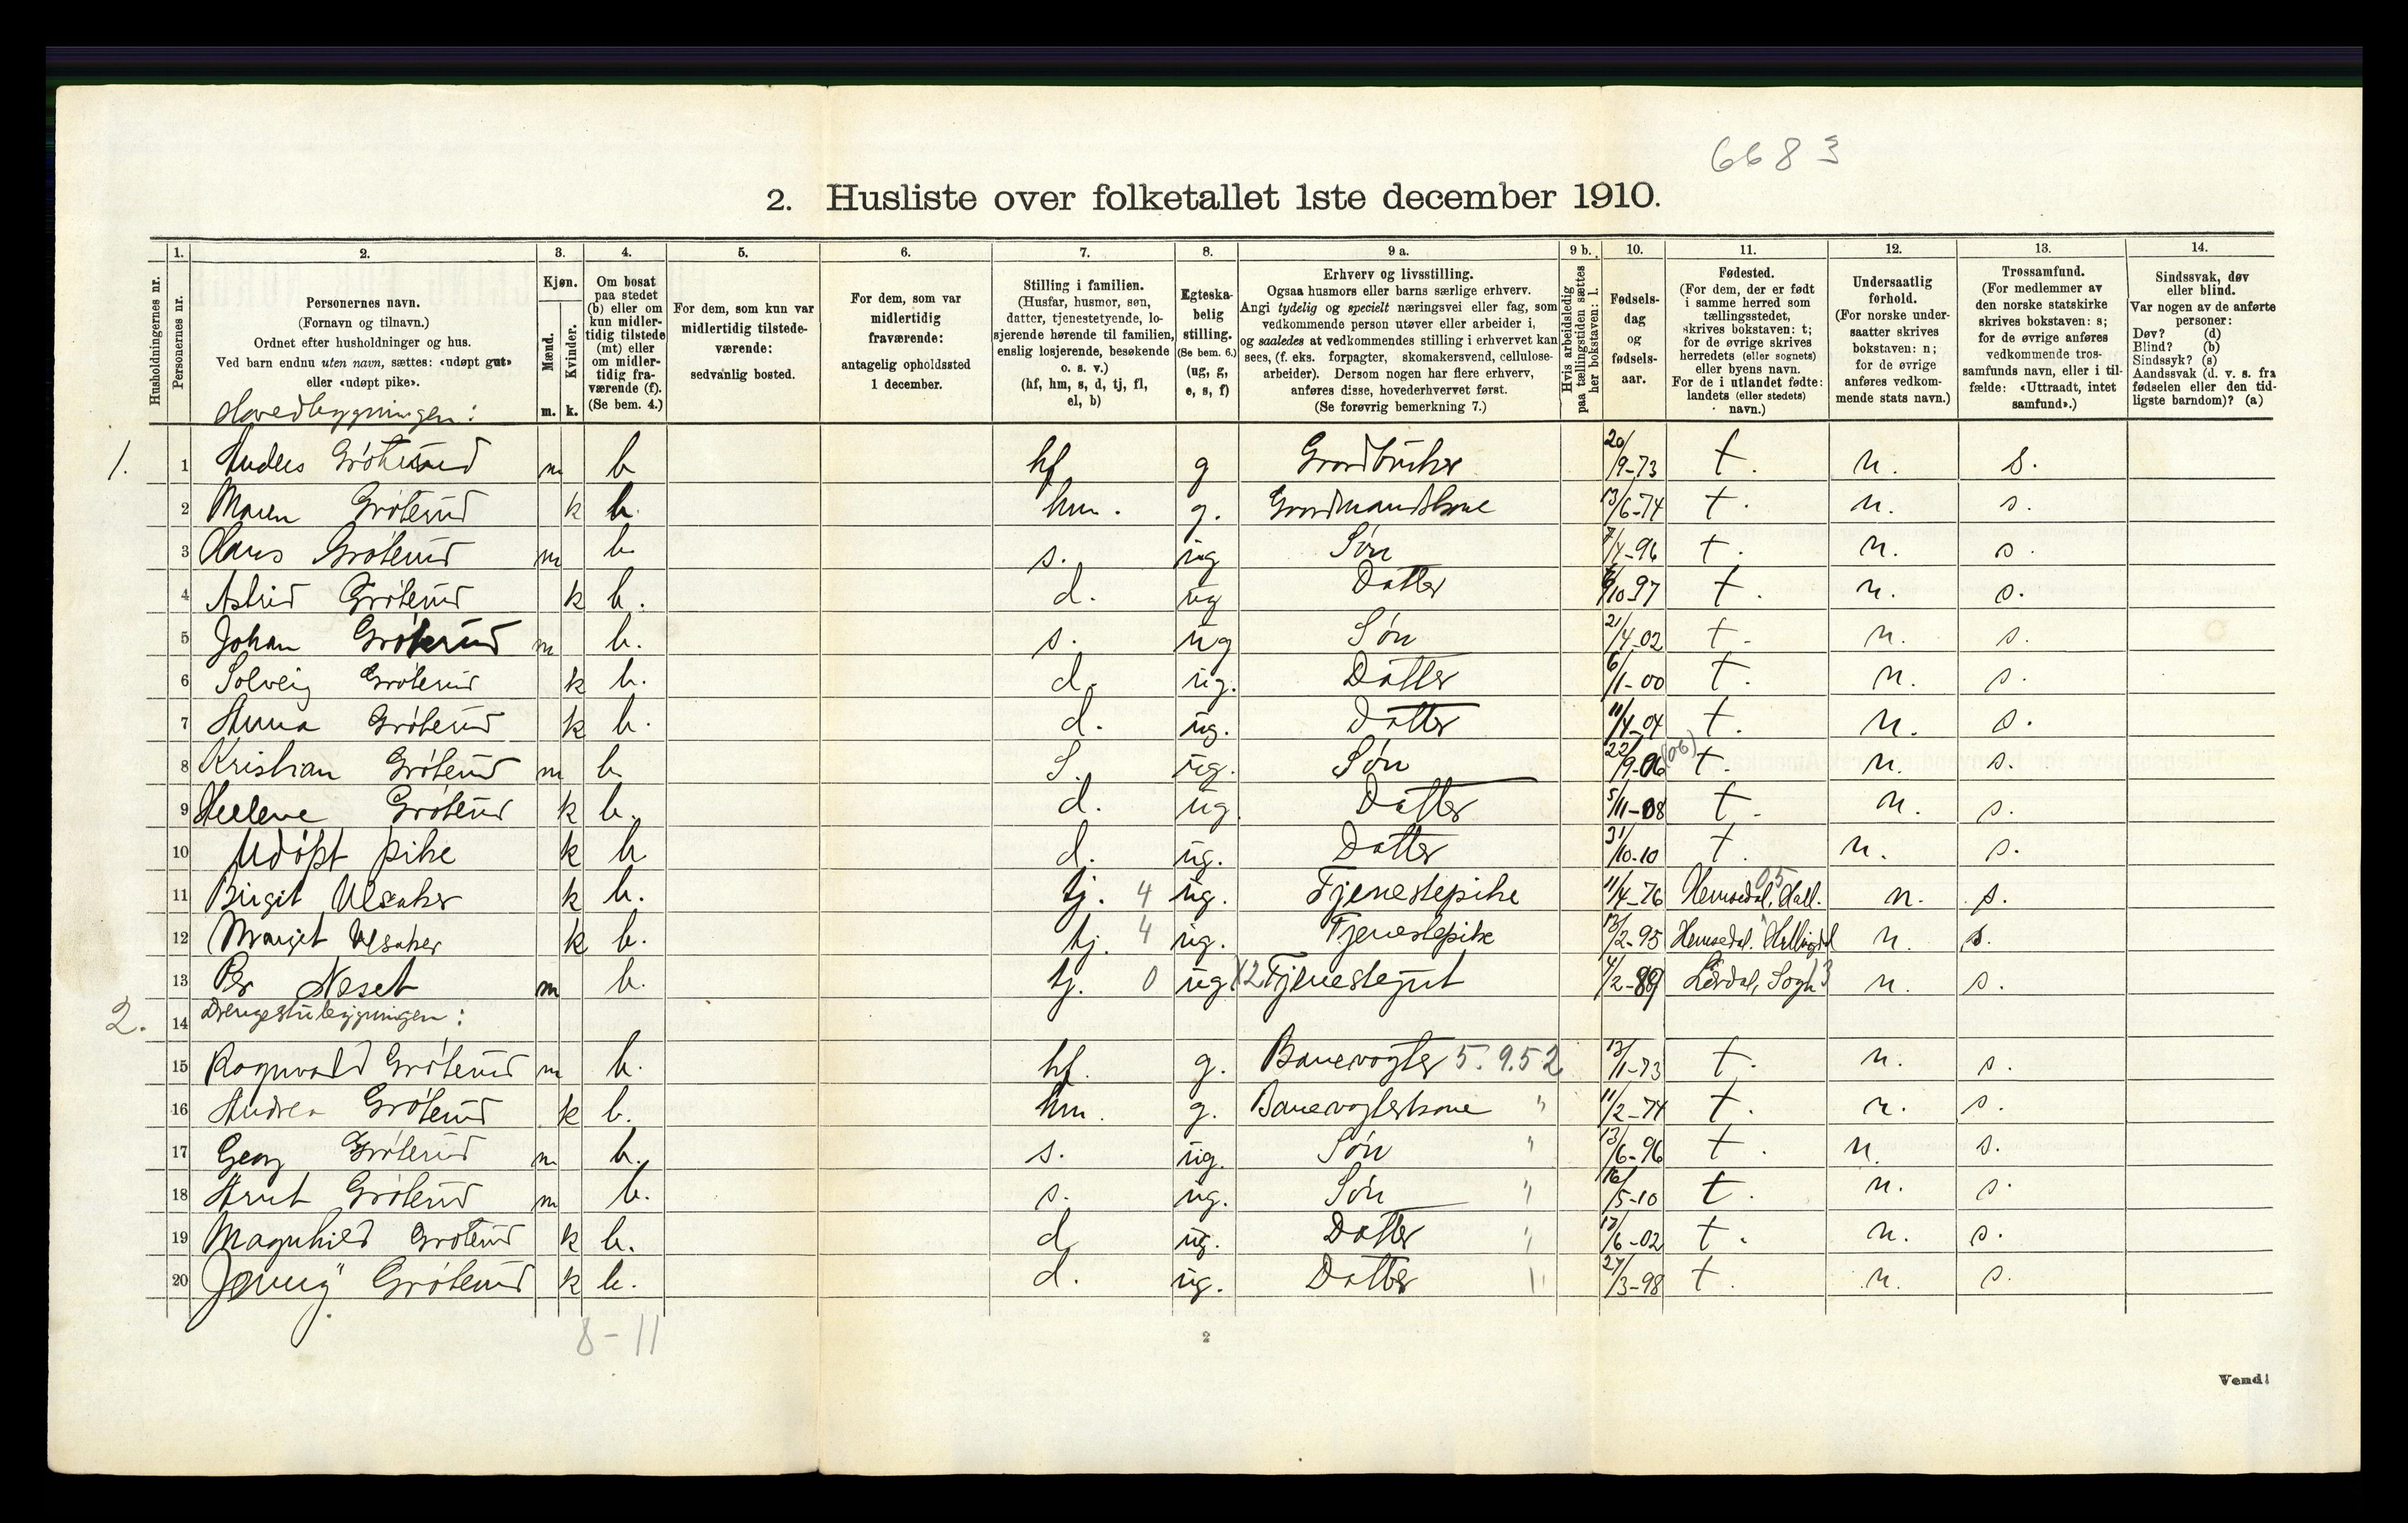 6683
2. Husliste over folketallet 1ste december 1910.
Husholdningernes nr.
1. Personernes nr.
2. Personernes navn. (Fornavn og tilnavn.) Ordnet efter husholdninger og hus. Ved barn endnu uten navn, sættes: «udøpt gut» eller «udøpt pike».
3. Kjøn. Mænd. m. Kvinder. k.
4. Om bosat paa stedet (b) eller om kun midlertidig tilstede (mt) eller om midlertidig fraværende (f). (Se bem. 4.)
5. For dem, som kun var midlertidig tilstedeværende: sedvanlig bosted.
6. For dem, som var midlertidig fraværende: antagelig opholdssted 1 december.
7. Stilling i familien. (Husfar, husmor, søn, datter, tjenestetyende, losjerende hørende til familien, enslig losjerende, besøkende o. s. v.) (hf, hm, s, d, tj, fl, el, b)
8. Egteskabelig stilling. (Se bem. 6.) (ug, g, e, s, f)
9 a. Erhverv og livsstilling. Ogsaa husmors eller barns særlige erhverv. Angi tydelig og specielt næringsvei eller fag, som vedkommende person utøver eller arbeider i, og saaledes at vedkommendes stilling i erhvervet kan sees, (f. eks. forpagter, skomakersvend, cellulosearbeider). Dersom nogen har flere erhverv, anføres disse, hovederhvervet først. (Se forøvrig bemerkning 7.)
9 b. Hvis arbeidsledig paa tællingstiden sættes her bokstaven: l.
10. Fødselsdag og fødselsaar.
11. Fødested. (For dem, der er født i samme herred som tællingsstedet, skrives bokstaven: t; for de øvrige skrives herredets (eller sognets) eller byens navn. For de i utlandet fødte: landets (eller stedets) navn.)
12. Undersaatlig forhold. (For norske undersaatter skrives bokstaven: n; for de øvrige anføres vedkommende stats navn.)
13. Trossamfund. (For medlemmer av den norske statskirke skrives bokstaven: s; for de øvrige anføres vedkommende trossamfunds navn, eller i tilfælde: «Uttraadt, intet samfund».)
14. Sindssvak, døv eller blind. Var nogen av de anførte personer: Døv? (d) Blind? (b) Sindssyk? (s) Aandssvak (d. v. s. fra fødselen eller den tidligste barndom)? (a)
Hovedbygningen:
1. 1 Anders Gröterud m b hf g Gardbruker 20/9-73 t. n. s.
2 Maren Gröterud k b. hm. g. Gardmandskone 13/6-74 t. n. s.
3 Hans Gröterud m b. s. ug Søn 7/4-96 t. n. s.
4 Astrid Gröterud k b. d. ug Datter /10-97 t. n. s.
5 Johan Gröterud m b. s. ug Søn 21/4-02 t. n. s.
6 Solveig Gröterud k b. d. ug. Datter 6/1-00 t. n. s.
7 Anna Gröterud k b. d. ug. Datter 11/4-04 t. n. s.
8 Kristian Gröterud m b. S. ug. Søn 22/9-06 (06) t. n. s.
9 Helene Gröterud k b. d. ug. Datter 5/11-08 t. n. s.
10 Udöpt pike k b d. ug. Datter 31/10-10 t. n. s.
11 Birgit Ulsaker k b. tj. 4 ug. Tjenestepike 11/4-76 Hemsedal, Hall. 05 n. s.
12 Margit Ulsaker k b. tj. 4 ug. Tjenestepike 13/2-95 Hemsedal. Hallingdal n. s.
13 Per Næset m b. tj. 0 ug. X2 Tjenestegut 4/2-89 Lærdal, Sogn 13 n. s.
2. 14 Drengestubygningen:
15 Ragnvald Gröterud m b. hf. g. Banevogter 5.9.52 13/1-73 t. n. s.
16 Andrea Gröterud k b. hm. g. Banevogterkone " 11/2-74 t. n. s.
17 Georg Gröterud m b. s. ug. Søn " 13/6-96 t. n. s.
18 Arnt Gröterud m b. s. ug. Søn " 16/5-10 t. n. s.
19 Magnhild Gröterud k b. d ug. Datter " 17/6-02 t. n. s.
20 Jenny Gröterud k b. d. ug. Datter " 27/3-98 t. n. s.
8-11
2
Vend!